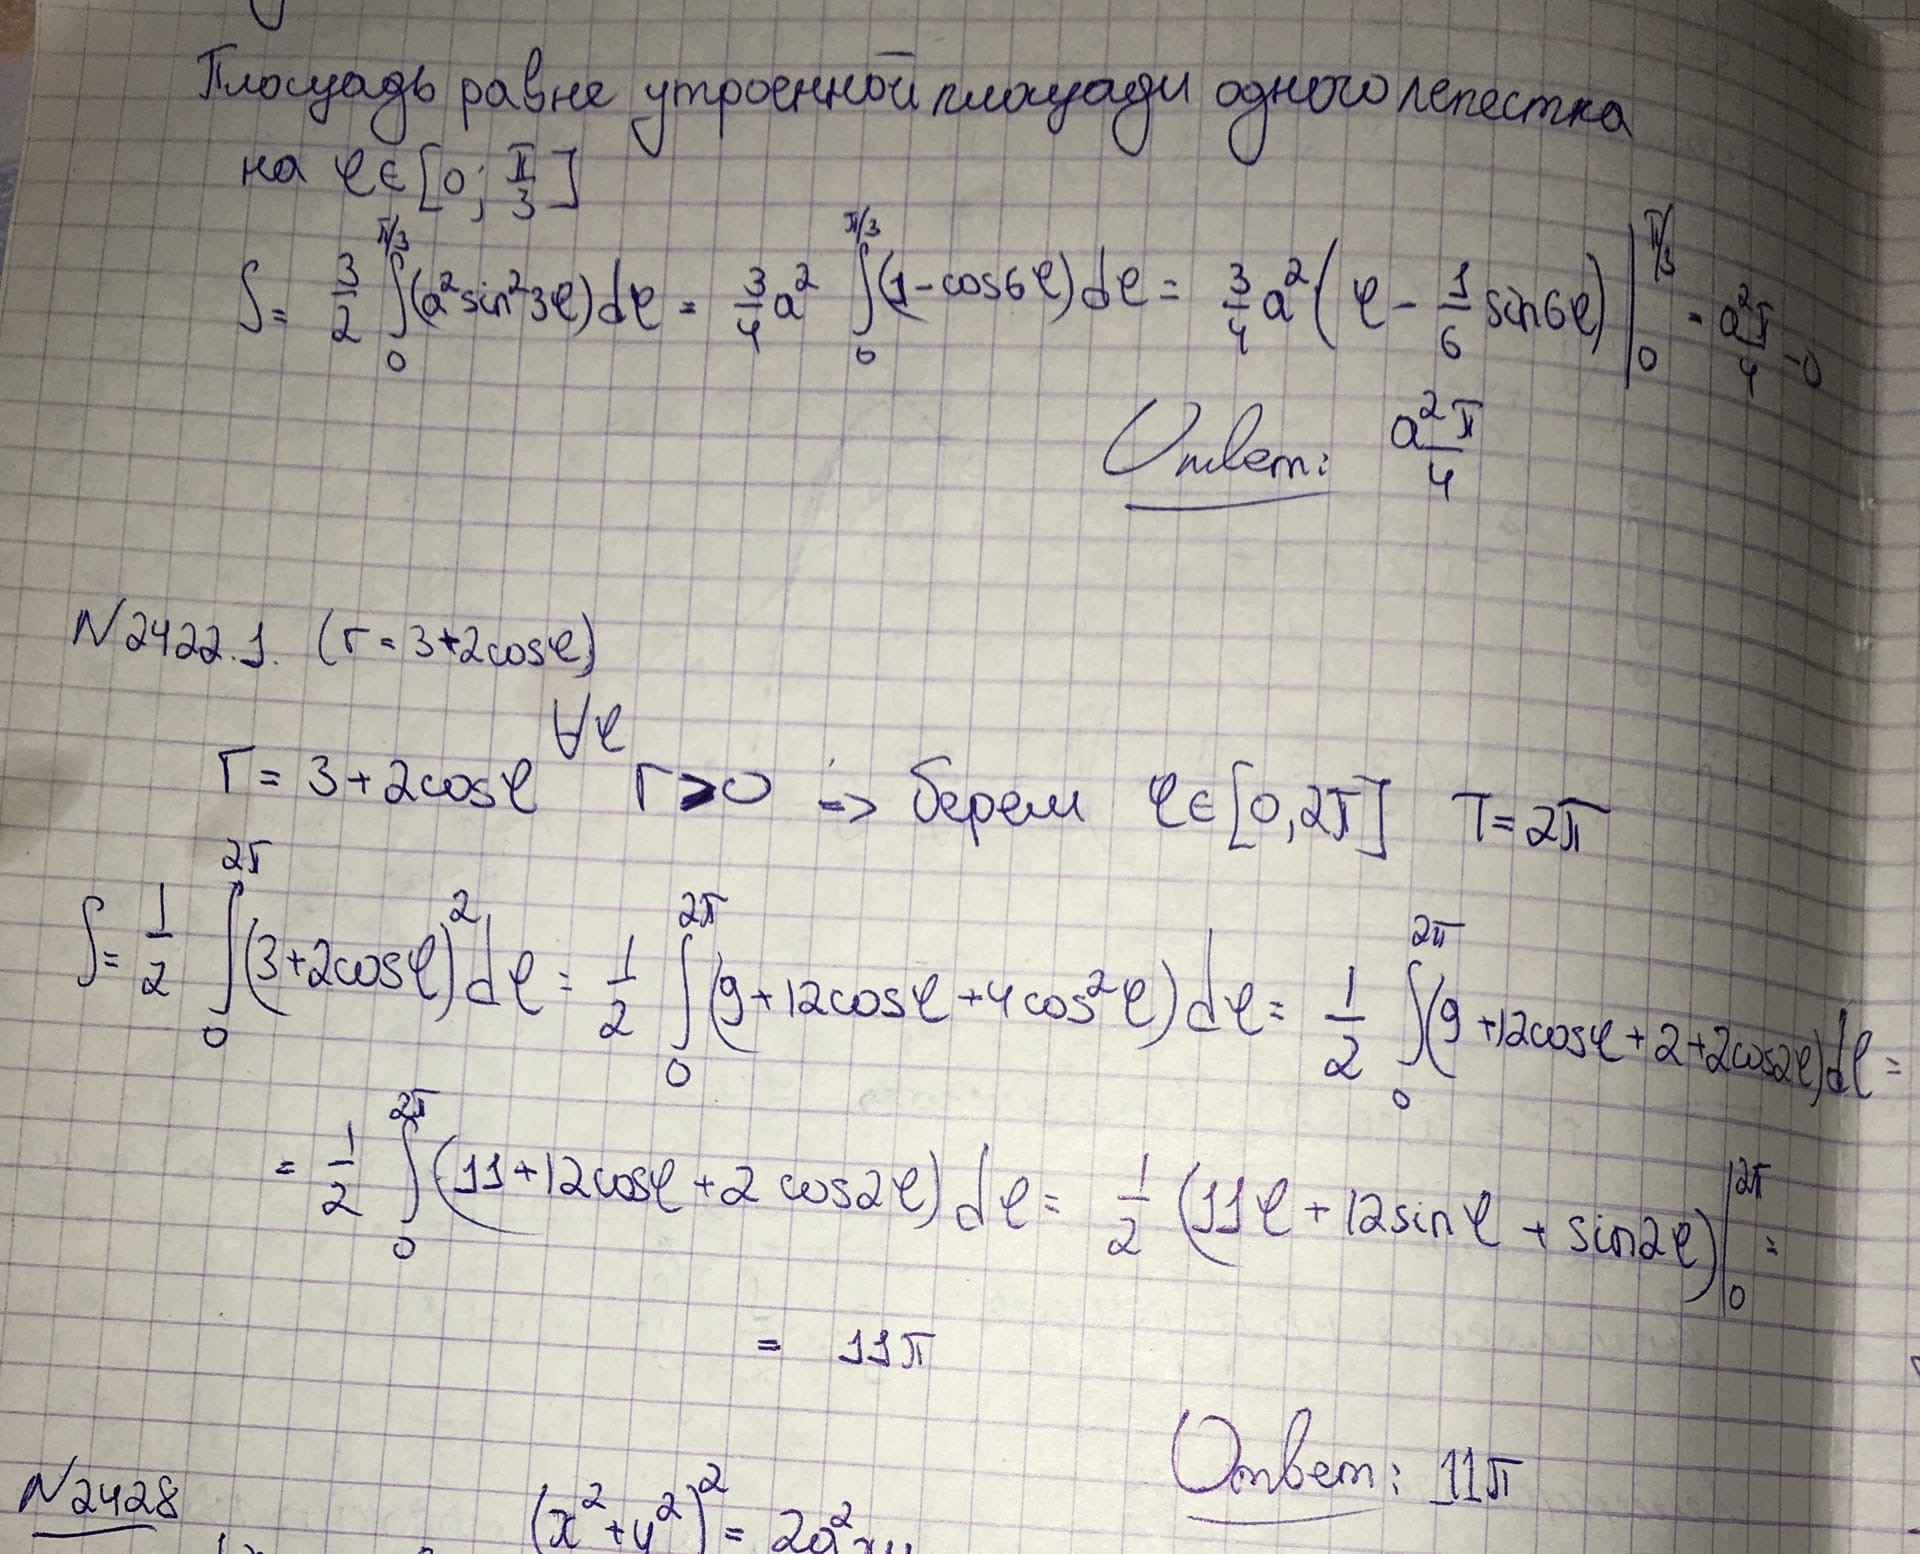 Площадь равна утроенной площади одного лепестка
на φ∈[0; π/3]
S = 3/2 ∫₀^{π/3} (a² sin² 3φ) dφ = 3/4 a² ∫₀^{π/3} (1 - cos6φ) dφ = 3/4 a² (φ - 1/6 sin6φ) |₀^{π/3} = a²π/4 - 0
Ответ: a²π/4
N2422.1. (r = 3+2cosφ)
∀φ
r = 3+2cosφ r > 0 => берем φ∈[0, 2π] T = 2π
S = 1/2 ∫₀^{2π} (3+2cosφ)² dφ = 1/2 ∫₀^{2π} (9+12cosφ+4cos²φ) dφ = 1/2 ∫₀^{2π} (9+12cosφ+2+2cos2φ) dφ =
= 1/2 ∫₀^{2π} (11+12cosφ+2cos2φ) dφ = 1/2 (11φ+12sinφ+sin2φ) |₀^{2π} =
= 11π
Ответ: 11π
N2428 (x²+y²)² = 2a²xy